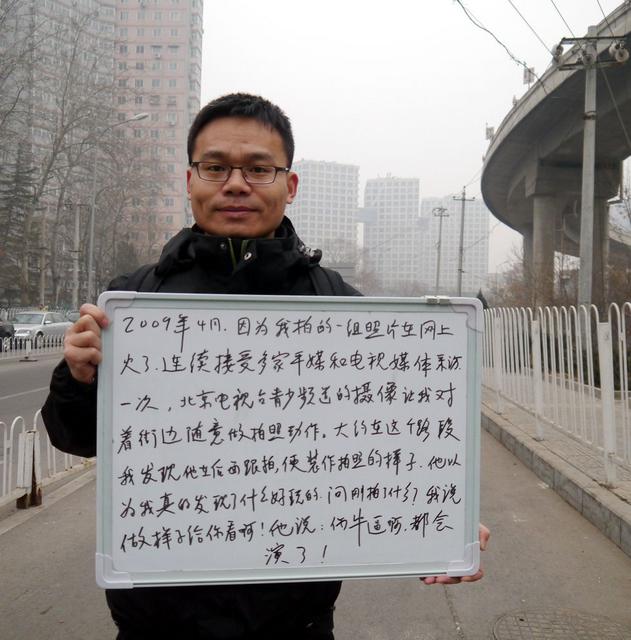 2009年4月.因为我拍的一组照片在网上
火了.连续接受多家平媒和电视媒体采访.
一次，北京电视台青少频道的摄像让我对
着街边随意做拍照动作。大约在这个路段
我发现他在后面跟拍,便装作拍照的样子.他以
为我真的发现了什么好玩的.问刚拍了什么?我说
做样子给你看啊!他说:你牛逼啊.都会
演了!